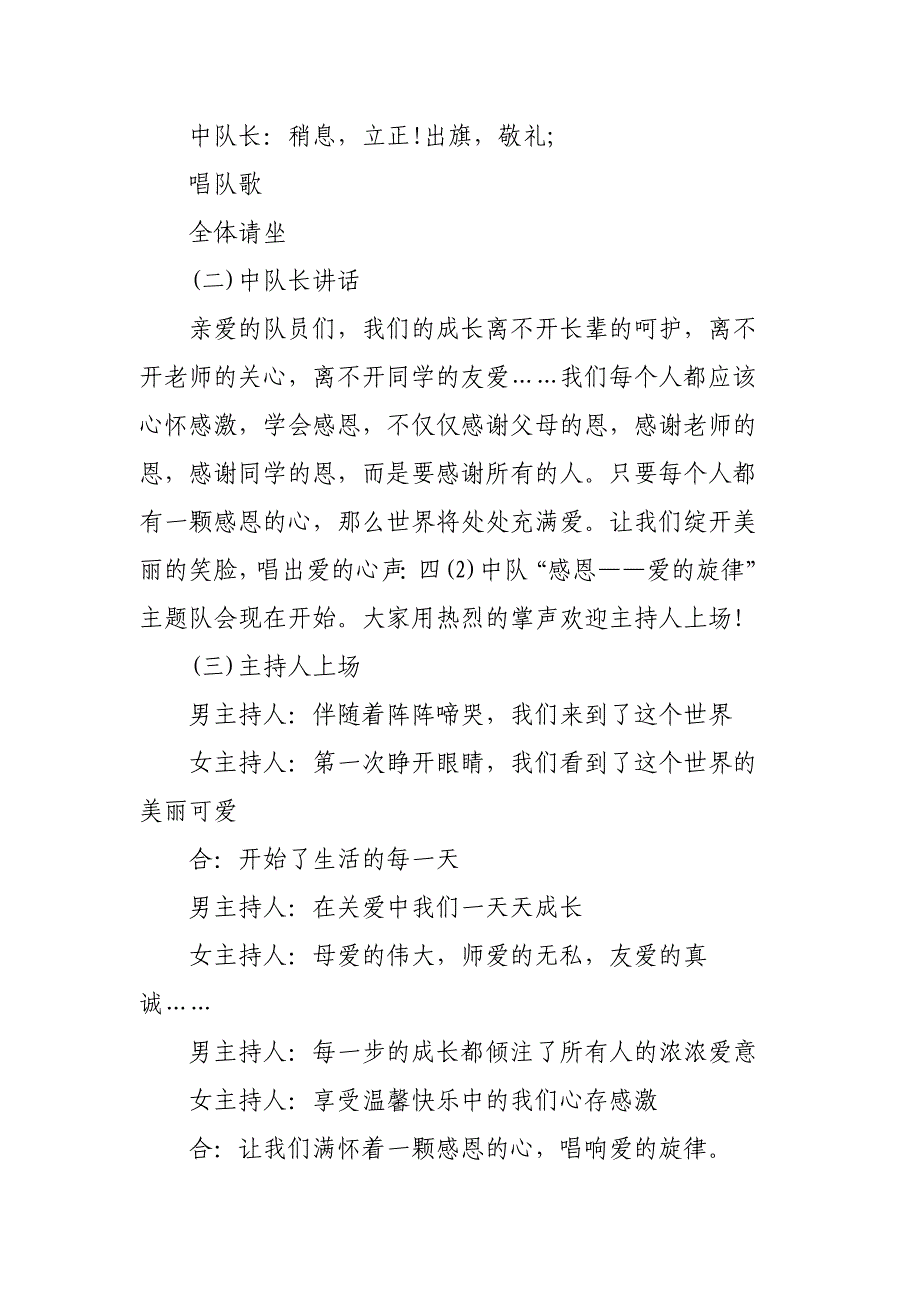 中队长：稍息，立正!出旗，敬礼;
唱队歌
全体请坐
(二)中队长讲话
亲爱的队员们，我们的成长离不开长辈的呵护，离不
开老师的关心，离不开同学的友爱……我们每个人都应该
心怀感激，学会感恩，不仅仅感谢父母的恩，感谢老师的
恩，感谢同学的恩，而是要感谢所有的人。只要每个人都
有一颗感恩的心，那么世界将处处充满爱。让我们绽开美
丽的笑脸，唱出爱的心声：四(2)中队“感恩——爱的旋律”
主题队会现在开始。大家用热烈的掌声欢迎主持人上场!
(三)主持人上场
男主持人：伴随着阵阵啼哭，我们来到了这个世界
女主持人：第一次睁开眼睛，我们看到了这个世界的
美丽可爱
合：开始了生活的每一天
男主持人：在关爱中我们一天天成长
女主持人：母爱的伟大，师爱的无私，友爱的真
诚……
男主持人：每一步的成长都倾注了所有人的浓浓爱意
女主持人：享受温馨快乐中的我们心存感激
合：让我们满怀着一颗感恩的心，唱响爱的旋律。